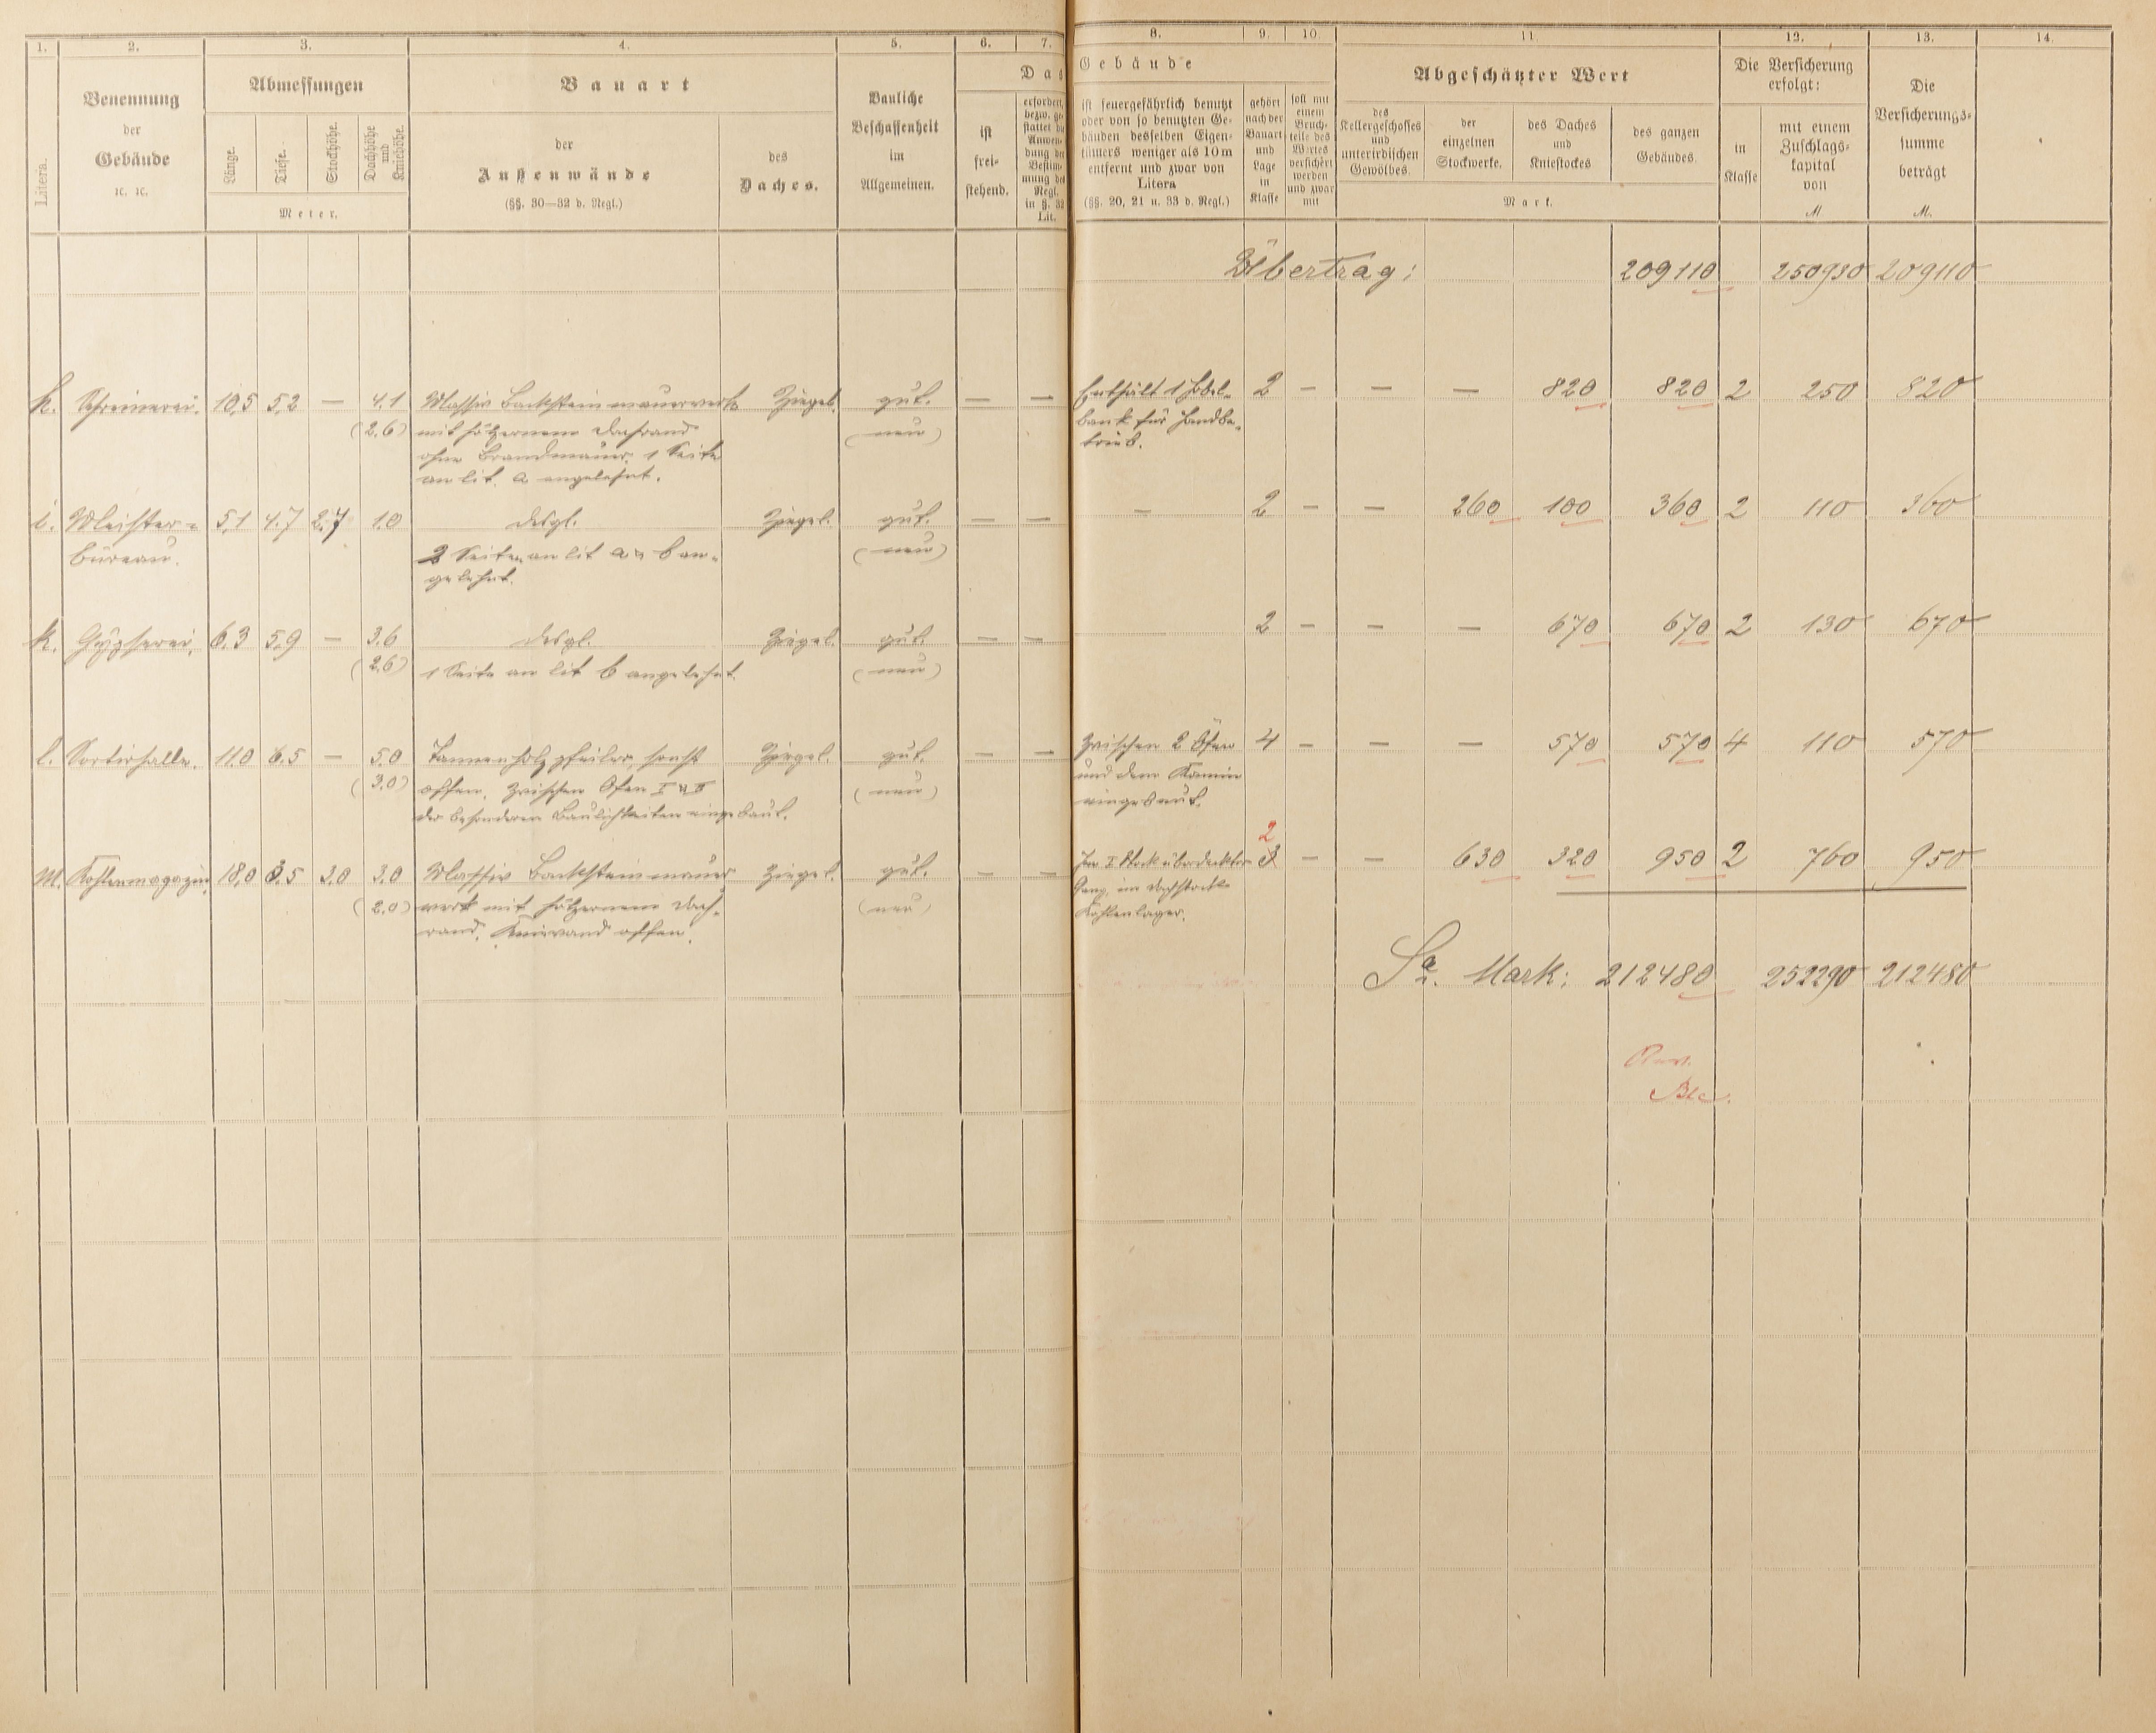 1. 2. 3. 4. 5. 6. 7. 8. 9. 10. 11. 12. 13. 14.
Litera.
Benennung
der
Gebäude
ꝛc. ꝛc.
Abmessungen
Länge.
Tiefe.
Stockhöhe.
Dachhöhe
und
Kniehöhe.
Meter.
Bauart
der
Außenwände
(§§. 30—32 d. Regl.)
des
Daches.
Bauliche
Beschaffenheit
im
Allgemeinen.
Das
ist
frei-
stehend.
erfordert,
bezw. ge-
stattet die
Anwen-
dung der
Bestim-
mung des
Regl.
in §. 32
Lit.
Gebäude
ist feuergefährlich benutzt
oder von so benutzten Ge-
bäuden desselben Eigen-
tümers weniger als 10 m
entfernt und zwar von
Litera
(§§. 20, 21 u. 33 d. Regl.)
gehört
nach der
Bauart
und
Lage
in
Klasse
soll mit
einem
Bruch-
teile des
Wertes
versichert
werden
und zwar
mit
Abgeschätzter Wert
des
Kellergeschosses
und
unterirdischen
Gewölbes.
der
einzelnen
Stockwerke.
des Daches
und
Kniestockes
des ganzen
Gebäudes.
Mark.
Die Versicherung
erfolgt:
in
Klasse
mit einem
Zuschlags-
kapital
von
M
Die
Versicherungs-
summe
beträgt
M.
Übertrag: 209110 250930 209110
h. Schreinerei. 10,5 5,2 — 4,1 Massiv Backsteinmauerwerk Ziegel. gut. — — Enthält 1 Hobel- 2 – — — 820 820 2 250 820
(2,6) mit hölzernem Dachrand (neu) bank für Handbe-
ohne Brandmauer. 1 Seite trieb.
an lit. a angelehnt.
i. Meister- 5,1 4.7 2.7 1.0 desgl. Ziegel. gut. — — — 2 – — 260 100 360 2 110 360
büreau. 2 Seiten an lit a u b an- (neu)
gelehnt.
k. Gypserei. 6.3 5.9 — 3.6 desgl. Ziegel. gut. — — 2 – — — 670 670 2 130 670
(2.6) 1 Seite an lit b angelehnt. (neu)
l. Sortirhalle. 11.0 6.5 — 5.0 Tannenholzpfeiler, sonst Ziegel. gut. — — Zwischen 2 Öfen 4 – — — 570 570 4 110 570
(3,0) offen. Zwischen Ofen I u II (neu) und dem Kamin
der besonderen Baulichkeiten eingebaut. eingebaut.
2
m. Kohlenmagazin. 18,0 3.5 3.0 3.0 Massiv Backsteinmauer- Ziegel. gut. — — Im I Stock überdeckter 3 – — 630 320 950 2 760 950
(2.0) werk mit hölzernem Dach- (neu) Gang, im Dachstock
rand. Kniewand offen. Kohlenlager.
Sa. Mark: 212480 252290 212480